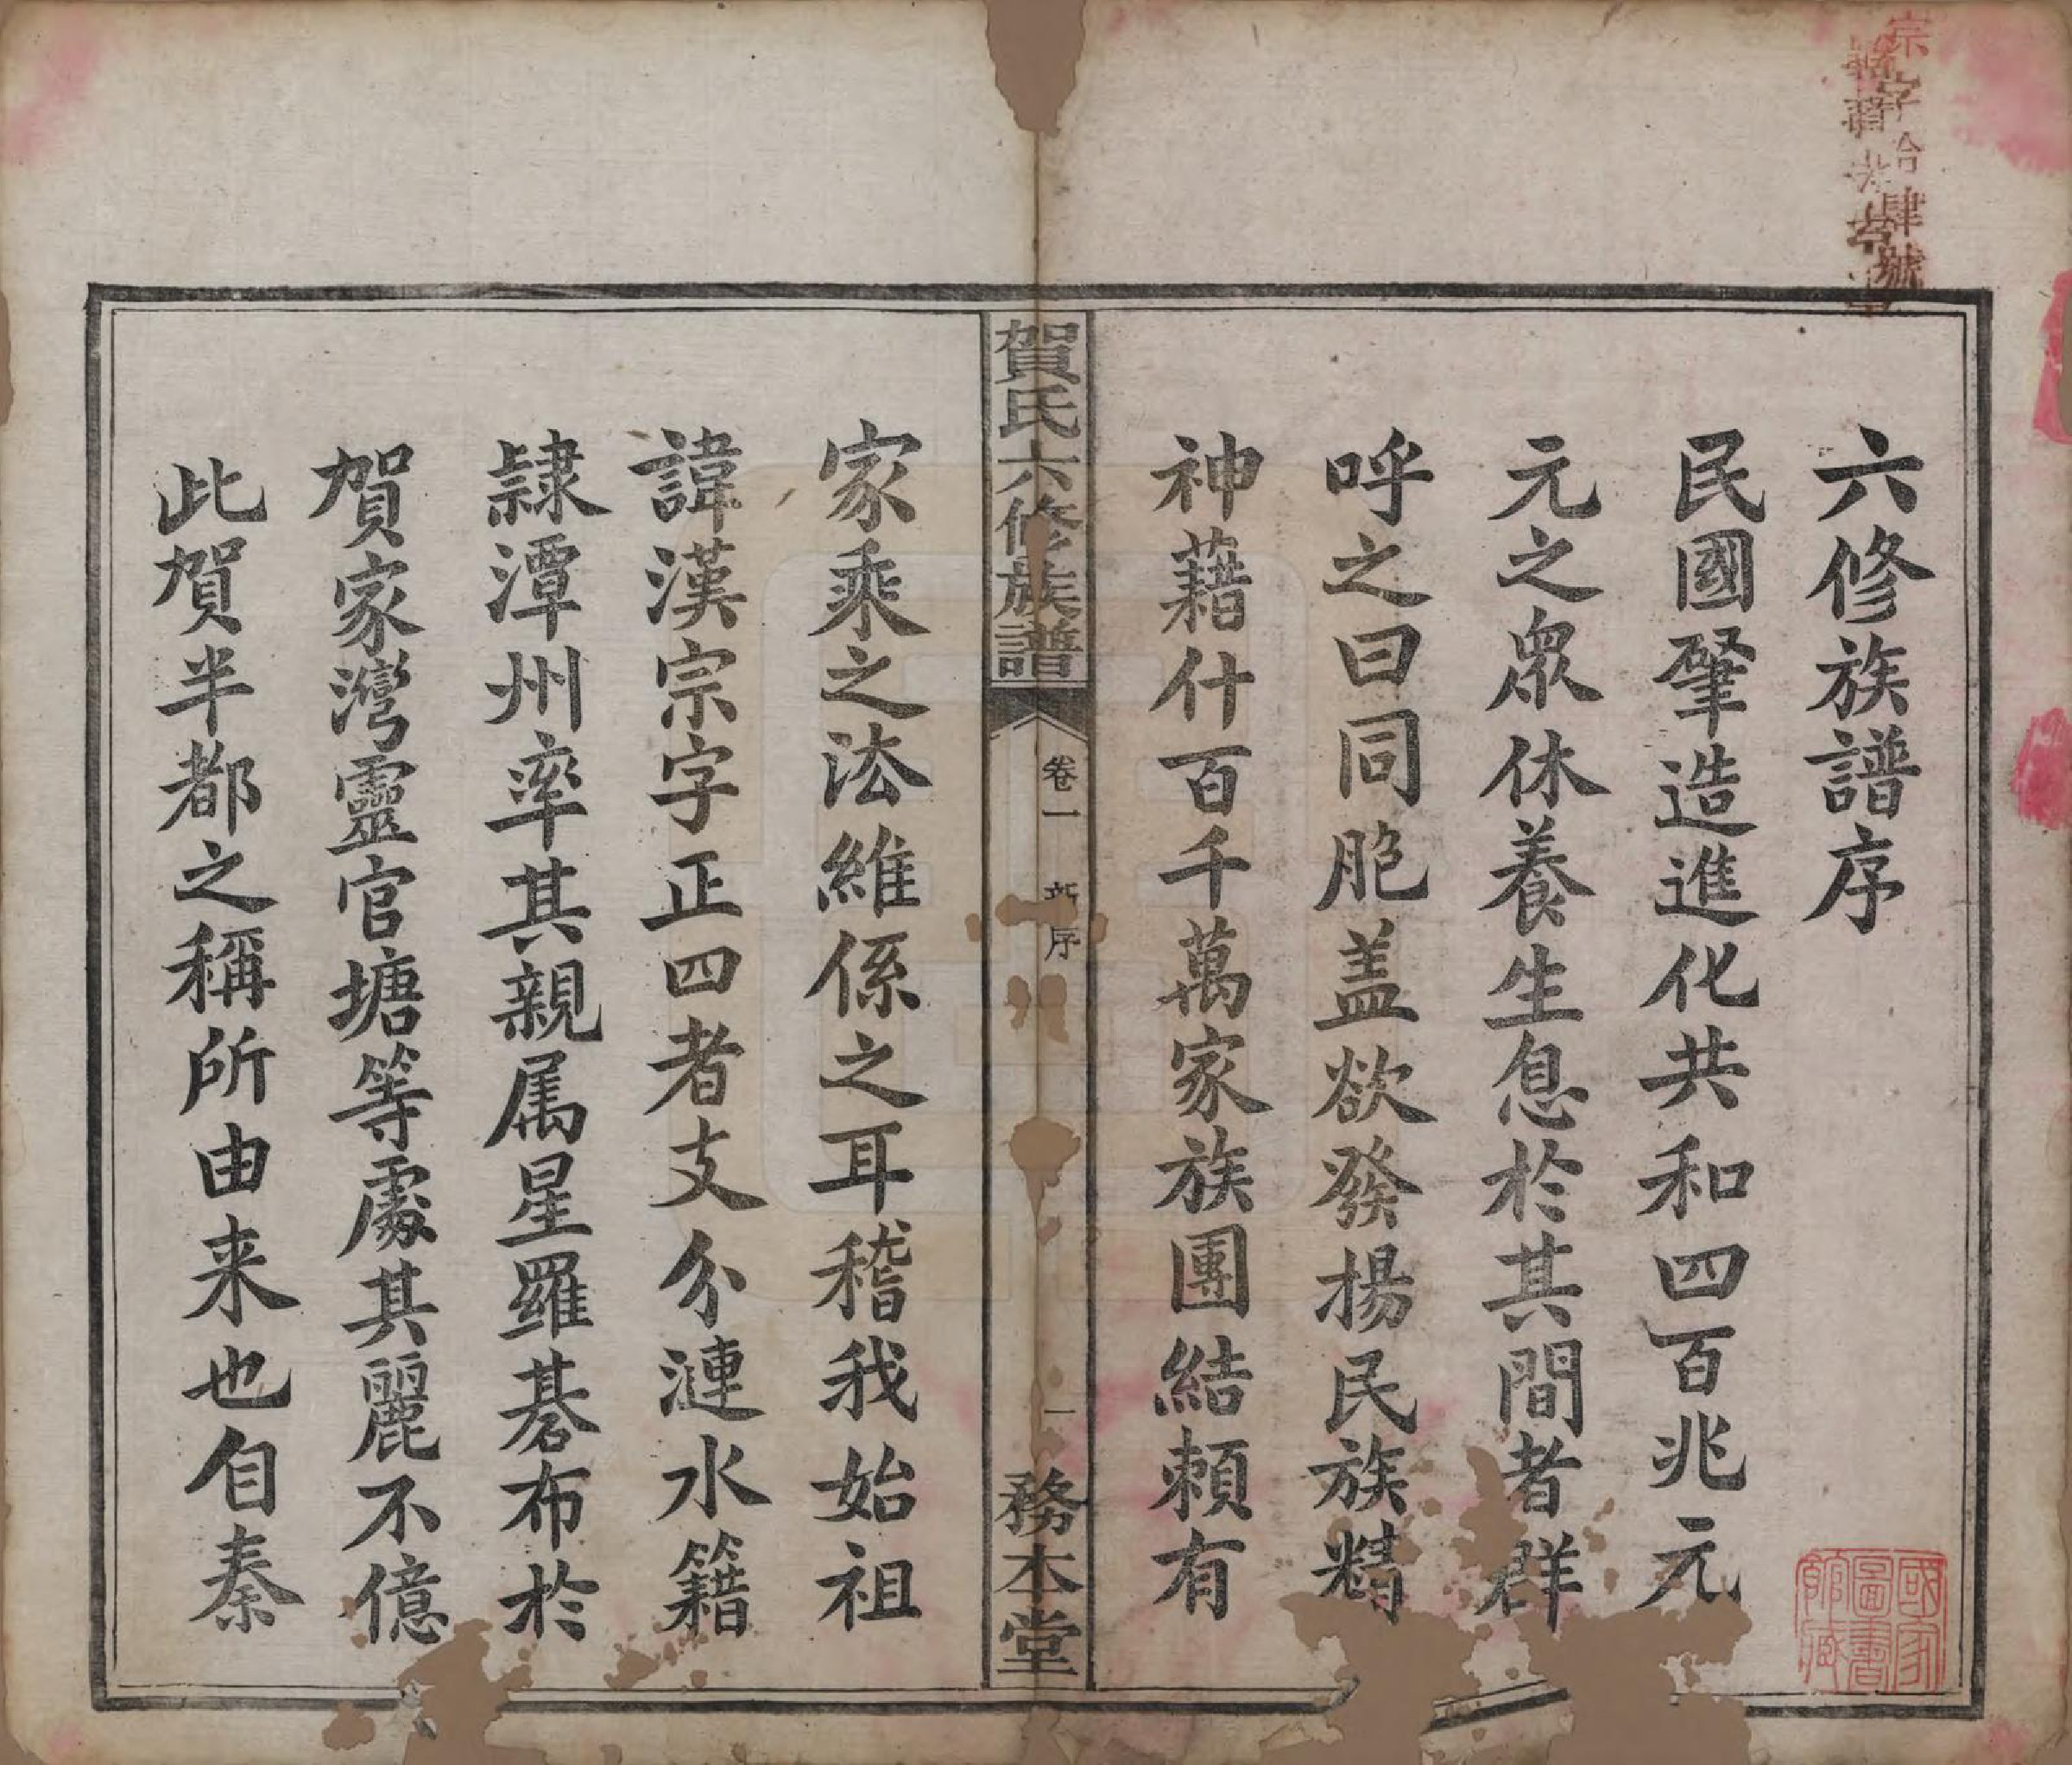 六修族譜序
民國肇造進化共和四百兆元
元之眾休養生息於其間者群
呼之曰同胞盖欲發揚民族精
神藉什百千萬家族團結賴有
賀氏六修族譜
卷一 新序
一
務本堂
家乘之法維係之耳稽我始祖
諱漢宗字正四者支分漣水籍
隸潭州率其親属星羅碁布於
賀家灣靈官塘等處其麗不億
此賀半都之稱所由来也自秦
宗字拾肆號
國家圖書館藏